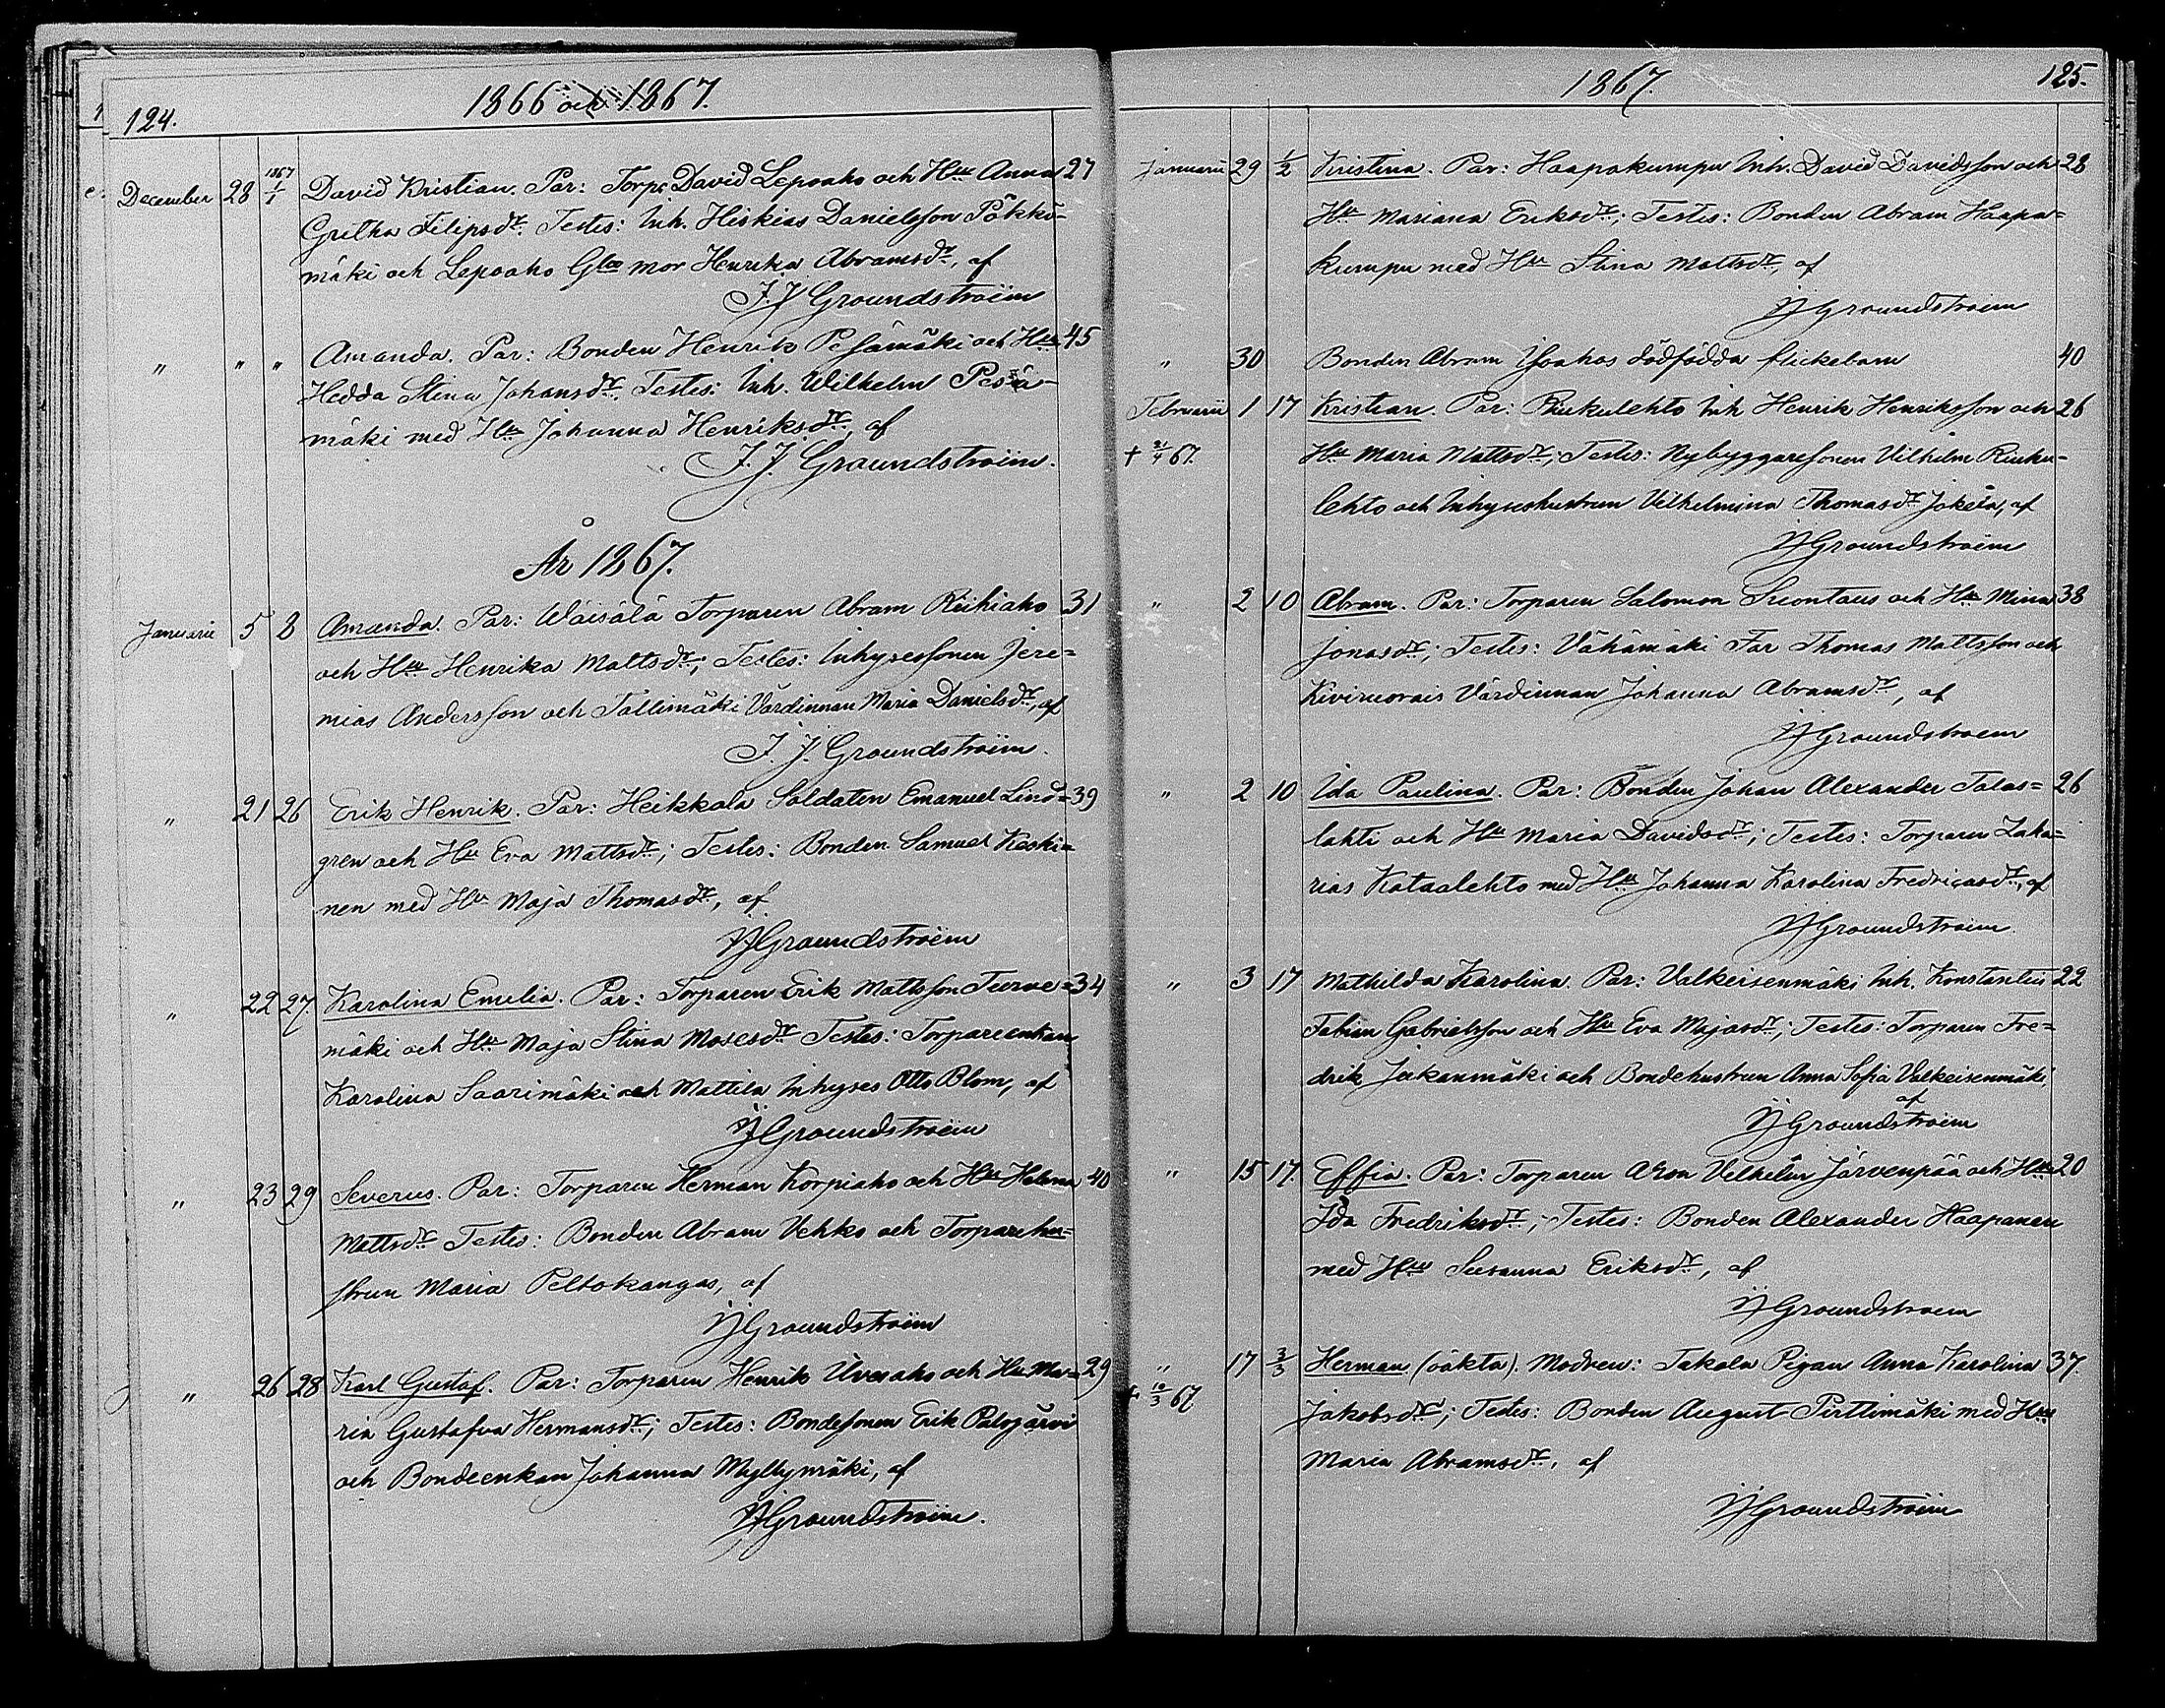 124.
1866 och 1867.
December 28 1867 1/1 David Kristian. Par: Torp. David Lepoaho och Hu Anna 27
Gretha Filipsdr. Testes: Inh. Hiskias Danielsson Pökkö-
mäki och Lepoaho Gla mor Henrika Abramsdr, af
J. J. Groundstroëm
" " " Amanda. Par: Bonden Henrik Pesämäki och Hu 45
Hedda Stina Johansdr. Testes: Inh. Wilhelm Pesä-
mäki med Hu Johanna Henriksdr, af
J. J. Groundstroëm.
År 1867.
Januarii 5 8 Amanda. Par: Wäisälä Torparen Abram Riihiaho 31
och Hu Henrika Mattsdr; Testes: Inhysessonen Jere=
mias Andersson och Tallimäki Värdinnan Maria Danielsdr, af
J. J. Groundstroëm.
" 21 26 Erik Henrik. Par: Heikkola Soldaten Emanuel Lind= 39
gren och Hu Eva Mattsdr; Testes: Bonden Samuel Keski=
nen med Hu Maja Thomasdr, af
JJGroundstroëm
" 22 27. Karolina Emelia. Par: Torparen Erik Mattsson Turve= 34
mäki och Hu Maja Stina Mosesdr Testes: Torpareenkan
Karolina Saarimäki och Mattila Inhyses Otto Blom, af
JJGroundstroëm
" 23 29 Severus. Par: Torparen Herman Korpiaho och Hu Helena 40
Mattsdr Testes: Bonden Abram Vehko och Torparehu=
strun Maria Peltokangas, af
JJGroundstroëm
" 26 28 Karl Gustaf. Par: Torparen Henrik Uvesaho och Hu Ma= 29
ria Gustafva Hermansdr; Testes: Bondesonen Erik Palojärvi
och Bondeenkan Johanna Myllymäki, af
JJGroundstroëm.
1867.
125.
Januarii 29 1/2 Kristina. Par: Haapakumpu Inh. David Davidsson och 28
Hu Mariana Eriksdr; Testes: Bonden Abram Haapa=
kumpu med Hu Stina Mattsdr, af
JJGroundstroëm
" 30 Bonden Abram Isoahos dödfödda flickebarn 40
Februarii 1 17 Kristian. Par: Riukulehto Inh Henrik Henriksson och 26
+ 21/4 67. Hu Maria Mattsdr; Testes: Nybyggaresonen Vilhelm Riuku-
lehto och Inhyseshustrun Vilhelmina Thomasdr Jokela, af
JJGroundstroëm
" 2 10 Abram. Par: Torparen Salomon Suontaus och Hu Mina 38
Jonasdr; Testes: Vähämäki Far Thomas Mattsson och
Kiviruorais Värdinnan Johanna Abramsdr, af
JJGroundstroem
" 2 10 Ida Paulina. Par: Bonden Johan Alexander Talas= 26
lahti och Hu Maria Davidsdr; Testes: Torparen Zaka=
rias Kataalehto med Hu Johanna Karolina Fredricasdr, af
JJGroundstroëm.
" 3 17 Mathilda Karolina. Par: Valkeisenmäki Inh. Konstantin 22
Fabian Gabrielsson och Hu Eva Majasdr; Testes: Torparen Fre=
drik Jukanmäki och Bondehustrun Anna Sofia Valkeisenmäki,
af
JJGroundstroëm
" 15 17. Effia. Par: Torparen Aron Vilhelm Järvenpää och Hu 20
Ida Fredriksdr; Testes: Bonden Alexander Haapanen
med Hu Susanna Eriksdr, af
JJGroundstroem
" 17 3/3 Herman (oäkta). Modren: Takala Pigan Anna Karolina 37.
+ 10/3 67 Jakobsdr; Testes: Bonden August Pirttimäki med Hu
Maria Abramsdr. af
JJGroundstroëm